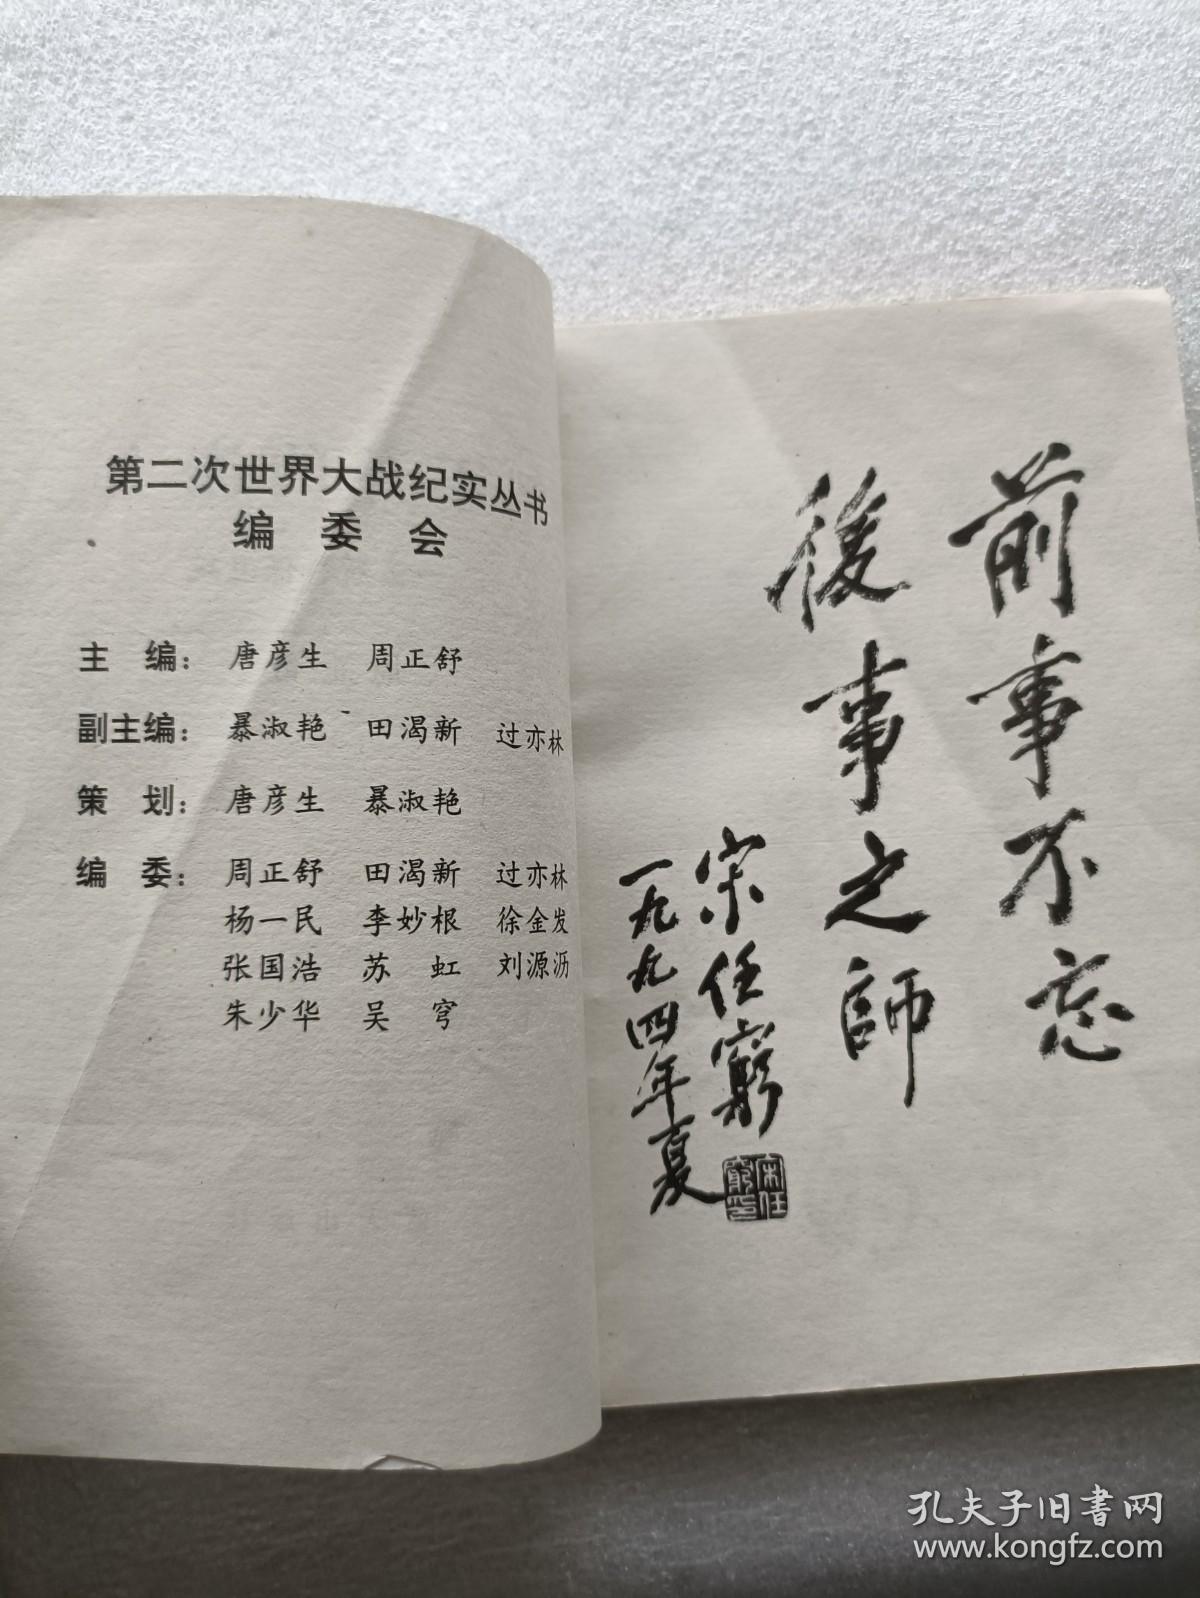 第二次世界大战纪实丛书
编 委 会
主 编： 唐彦生 周正舒
副主编： 暴淑艳 田渴新 过亦林
策 划： 唐彦生 暴淑艳
编 委： 周正舒 田渴新 过亦林
杨一民 李妙根 徐金发
张国浩 苏 虹 刘源沥
朱少华 吴 穹
前事不忘
後事之師
宋任窮
一九九四年夏
宋任
窮印
孔夫子旧書网
www.kongfz.com